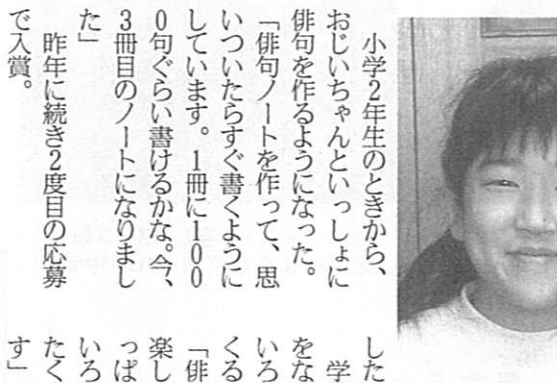 小学2年生のときから、
おじいちゃんといっしょに
俳句を作るようになった。
「俳句ノートを作って、思
いついたらすぐ書くように
しています。1冊に100
0句ぐらい書けるかな。今、
3冊目のノートになりまし
た」
昨年に続き2度目の応募
で入賞。
した
学
をな
いろ
くる
「俳
楽し
っぱ
いろ
たく
す」